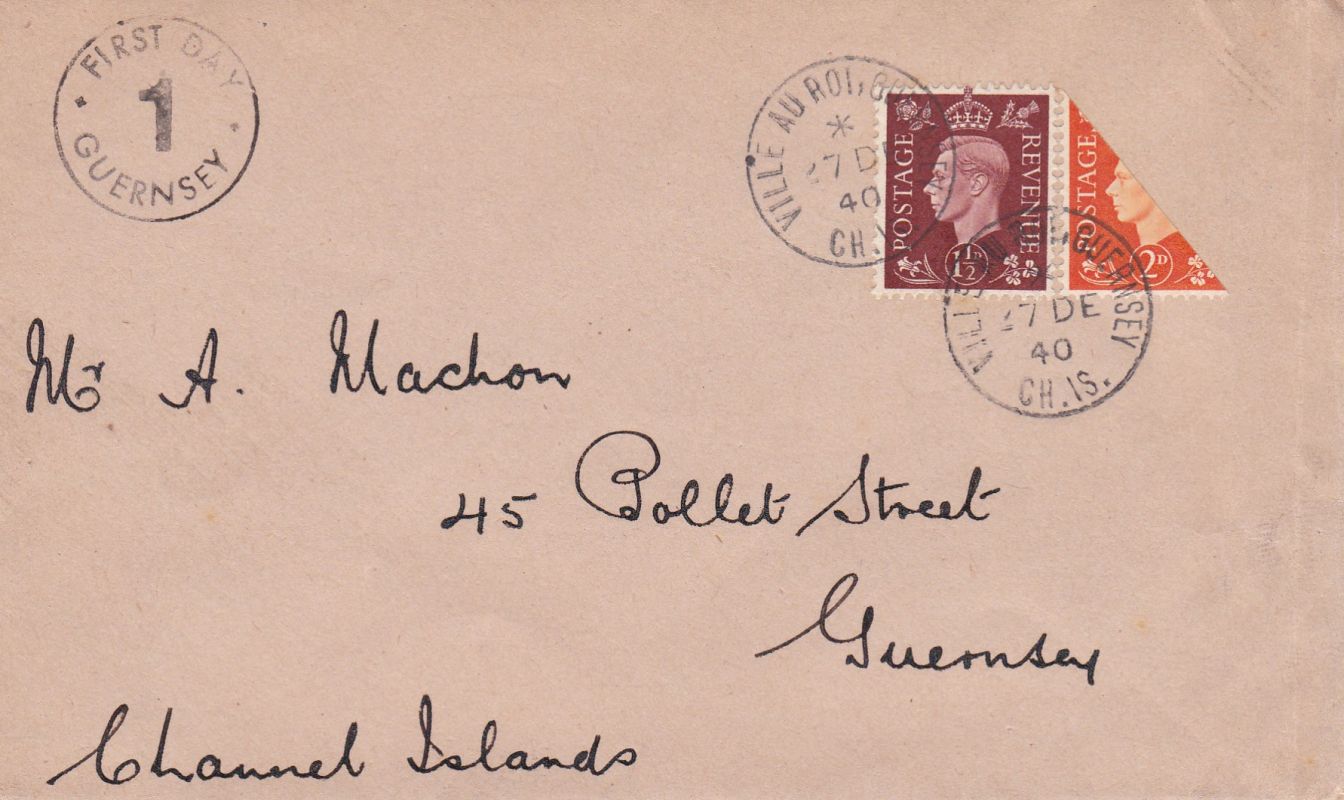 FIRST DAY
1
GUERNSEY
VILLE AU ROI, GU
*
27 DE
40
CH.I
POSTAGE REVENUE
1½D
POSTAGE
2D
VILLE AU ROI, GUERNSEY
*
27 DE
40
CH.IS.
Mr A. Machon
45 Pollet Street
Guernsey
Channel Islands